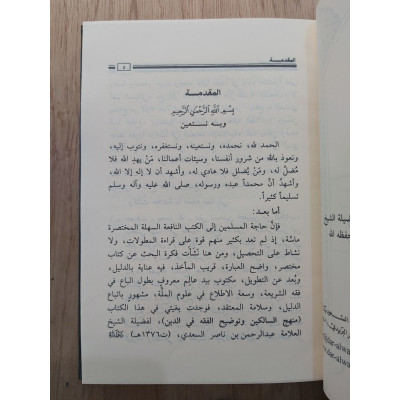 المقدمـــة
٥
المقدمـــة
بِسْمِ اللَّهِ الرَّحْمَنِ الرَّحِيمِ
وبه نستعين
الحمد لله، نحمده، ونستعينه، ونستغفره، ونتوب إليه،
ونعوذ بالله من شرور أنفسنا، وسيئات أعمالنا، مَنْ يهدِ الله فلا
مُضلَّ له، ومَنْ يُضلل فلا هادي له، وأشهد أن لا إله إلا الله،
وأشهدُ أنَّ محمداً عبده ورسوله، صلى الله عليه وآله وسلم
تسليماً كثيراً.
أما بعد:
فإنَّ حاجة المسلمين إلى الكتب النافعة السهلة المختصرة
ماسَّة، إذ لم تعد بكثير منهم قوة على قراءة المطولات، ولا
نشاط على التحصيل، ومن هنا نَشَأت فكرة البحث عن كتاب
مختصر، واضح العبارة، قريب المأخذ، فيه عناية بالدليل،
وبُعد عن التطويل، مكتوب بيد عالِمٍ معروف بطول الباع في
فقه الشريعة، وسعة الاطلاع في علوم الملَّة، مشهورٍ باتباع
الدليل، وسلامة المعتقد، فوجدت بغيتي في هذا الكتاب
(منهج السالكين وتوضيح الفقه في الدين)، لفضيلة الشيخ
العلامة عبدالرحمن بن ناصر السعدي، (ت١٣٧٦هـ) رَحِمَهُ اللَّهُ
فضيلة الشيخ
حفظه الله